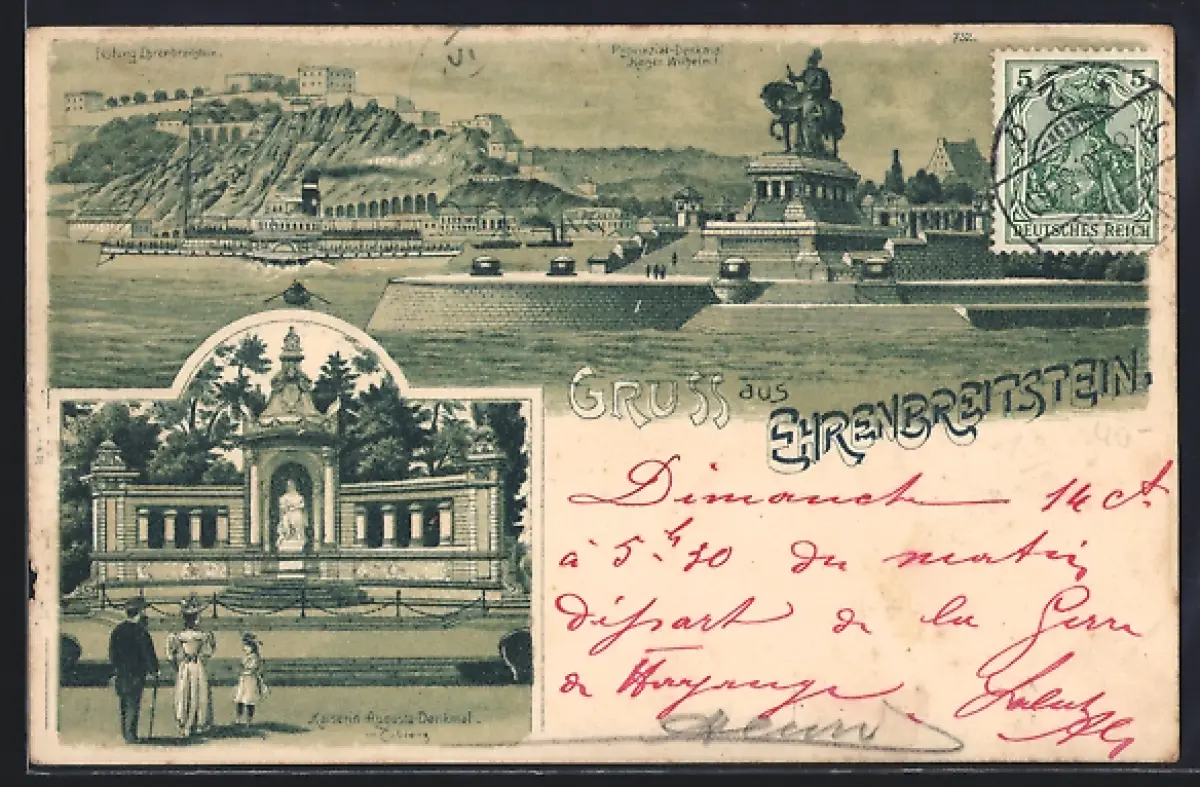 Festung Ehrenbreitstein.
Provinzial-Denkmal
Kaiser Wilhelm I
732.
5 5
DEUTSCHES REICH
GRUSS aus
EHRENBREITSTEIN.
Dimanche 14 ct
à 5 h 30 du matin
départ de la Gare
de Hayange. Salut
Kaiserin Augusta-Denkmal.
in Coblenz
Henri